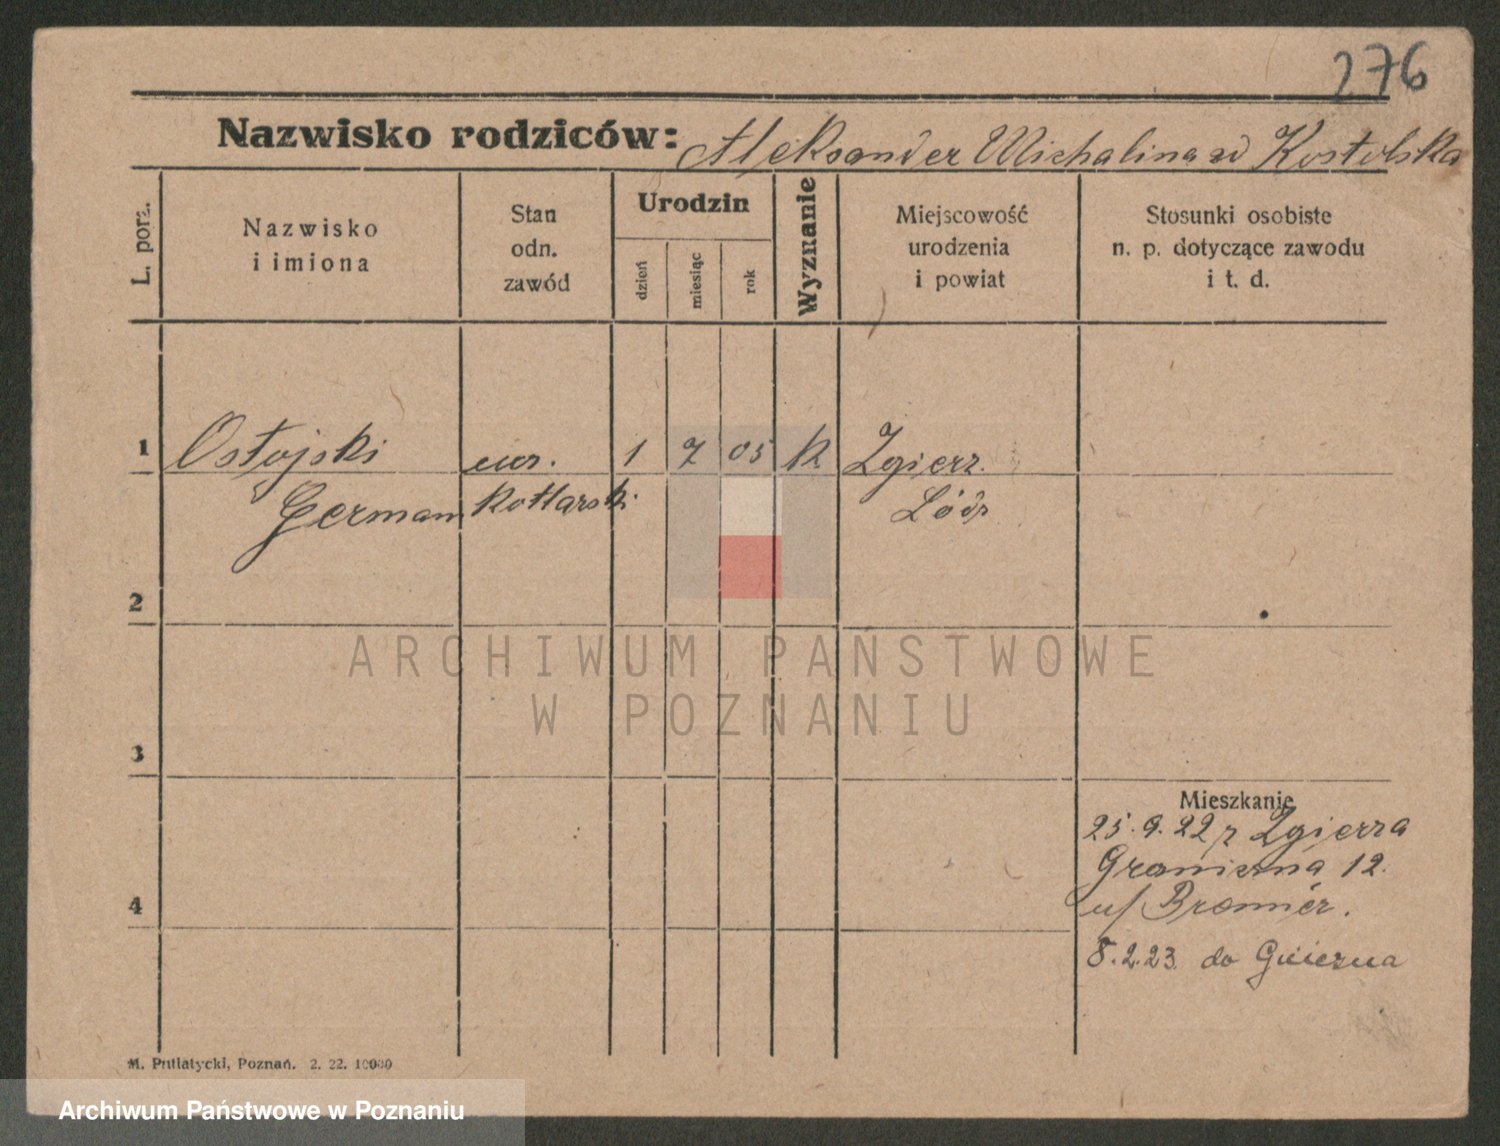 276
Nazwisko rodziców: Aleksander Michalina zd Kostolska
L. porz.
Nazwisko
i imiona
Stan
odn.
zawód
Urodzin
dzień
miesiąc
rok
Wyznanie
Miejscowość
urodzenia
i powiat
Stosunki osobiste
n. p. dotyczące zawodu
i t. d.
1 Ostojski ucz. 1 7 05 k Zgierz.
German kotlarski Łódź
2
3
4
Mieszkanie
25.9.22 z Zgierza
Graniczna 12.
u/ Bronner.
8.2.23. do Gniezna
M. Putiatycki, Poznań. 2. 22. 10000
ARCHIWUM PAŃSTWOWE
W POZNANIU
Archiwum Państwowe w Poznaniu